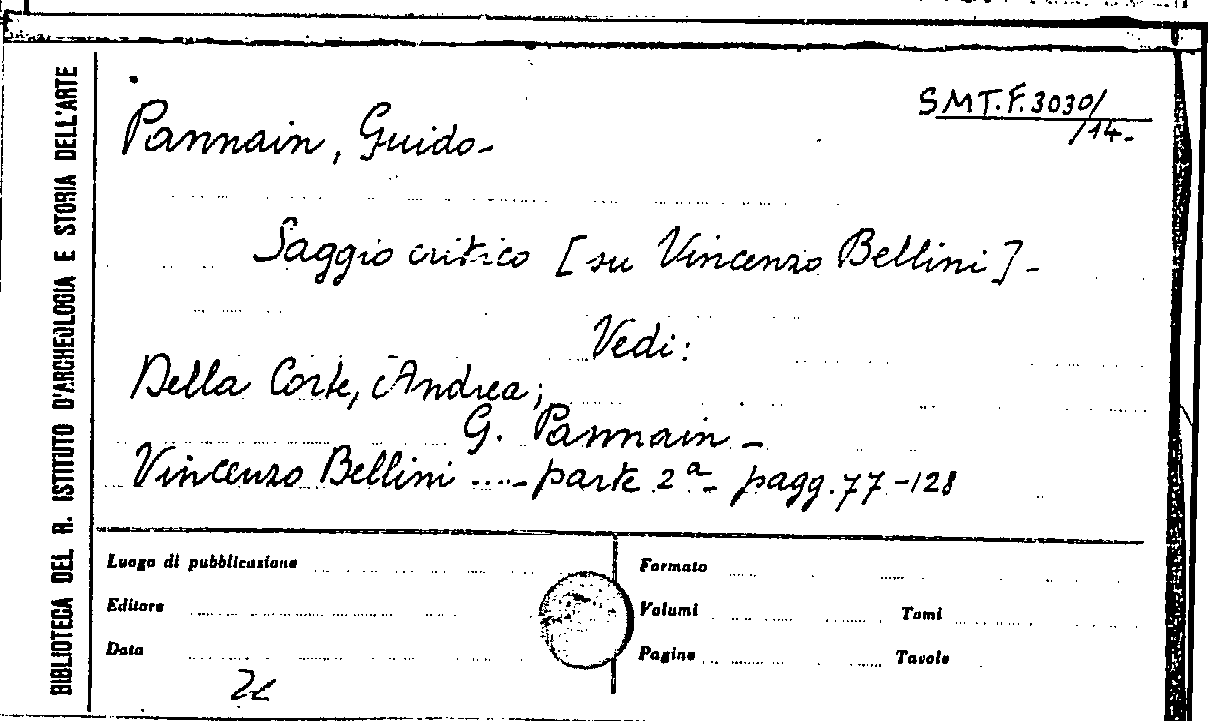 SMT.F.3030/
/14-
Pannain, Guido-
Saggio critico [su Vincenzo Bellini]-
Vedi:
Della Corte, Andrea;
G. Pannain -
Vincenzo Bellini ....- parte 2ª- pagg. 77-128
BIBLIOTECA DEL R. ISTITUTO D'ARCHEOLOGIA E STORIA DELL'ARTE
Luogo di pubblicazione
Editore
Data
Formato
Volumi Tomi
Pagine Tavole